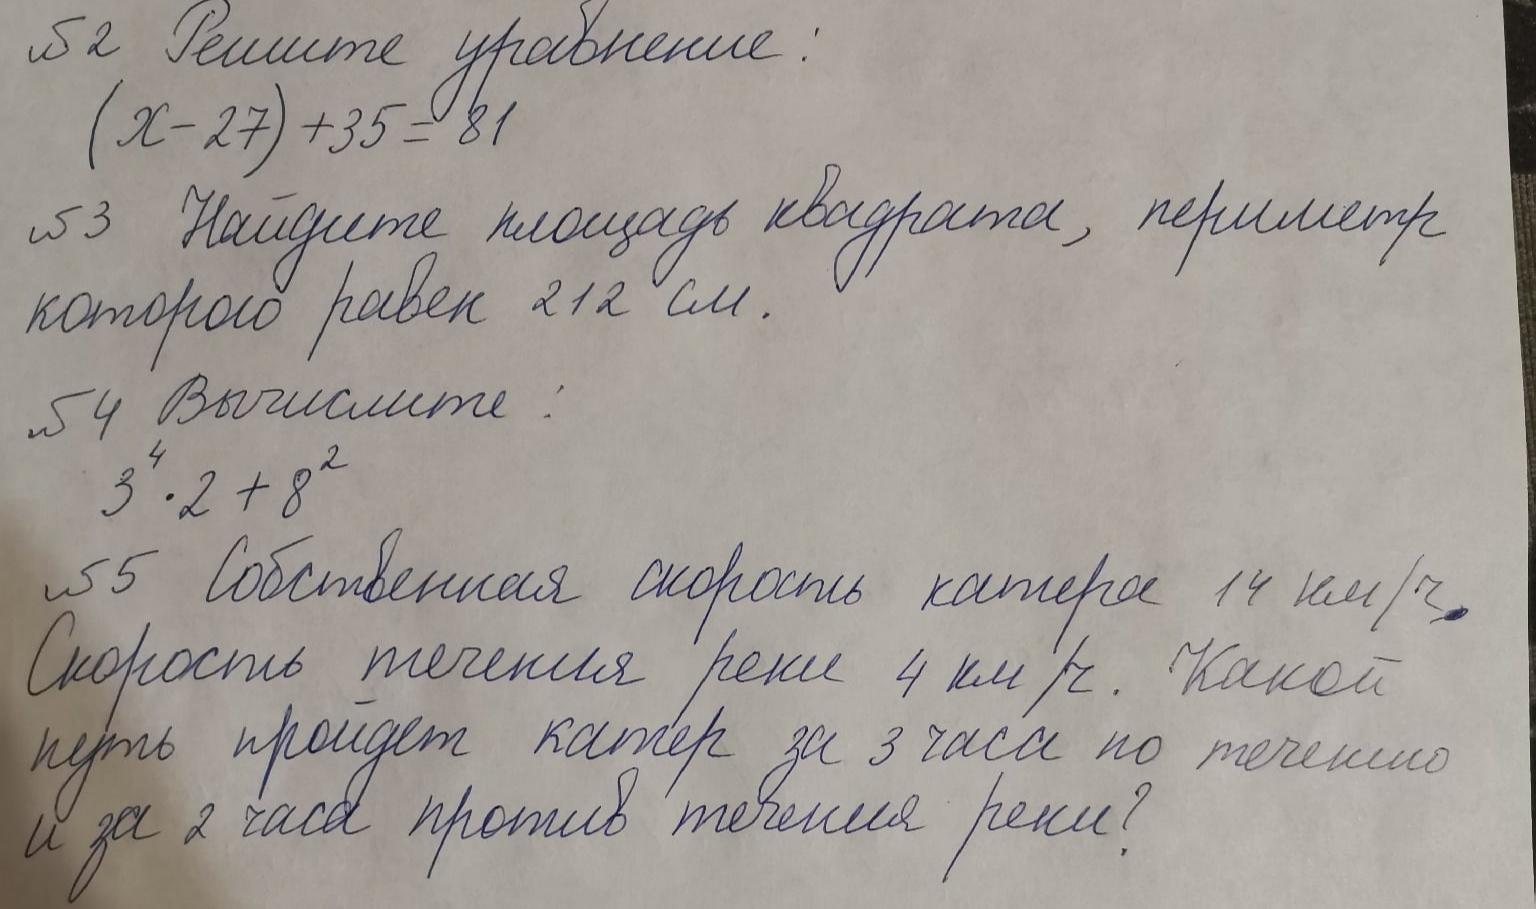 №2 Решите уравнение:
(x-27)+35=81
№3 Найдите площадь квадрата, периметр
которого равен 212 см.
№4 Вычислите:
3⁴·2+8²
№5 Собственная скорость катера 14 км/ч.
Скорость течения реки 4 км/ч. Какой
путь пройдет катер за 3 часа по течению
и за 2 часа против течения реки?